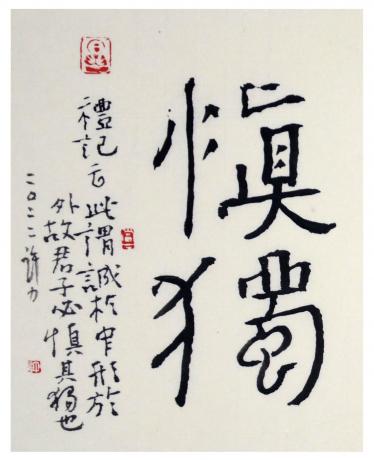 慎獨
禮記云此謂誠於中形於
外故君子必慎其獨也
二〇二二許力